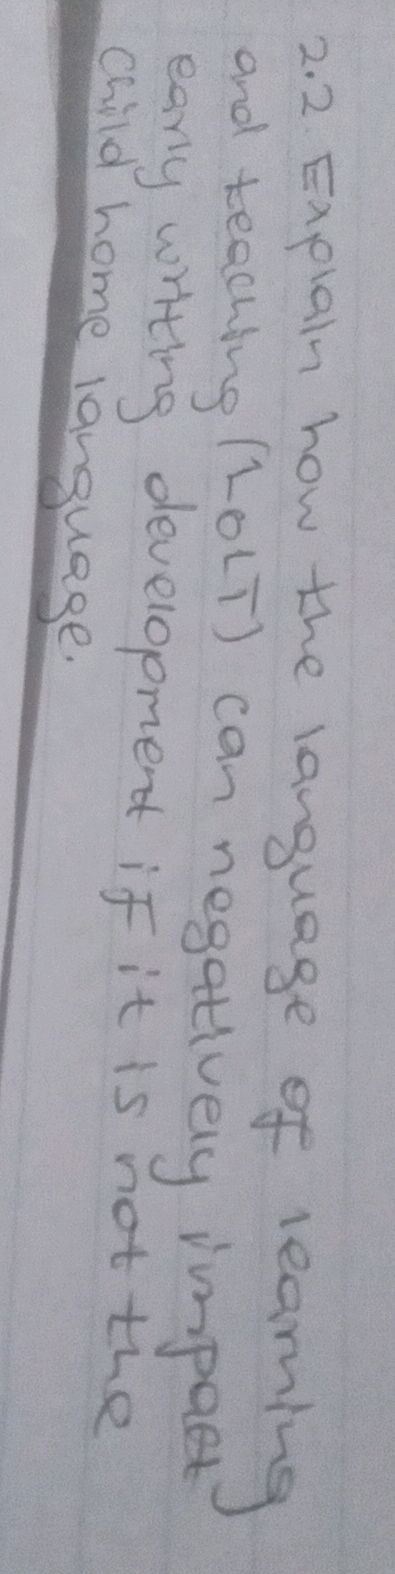 2.2. Explain how the language of learning
and teaching (LOLT) can negatively impact
early writing development if it is not the
child home language.